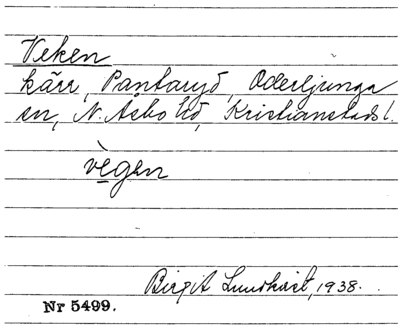 Veken
kärr, Pantaryd, Oderljunga
sn, N. Åsbo hd, Kristianstads l.
vègen
Birgit Lundkvist, 1938.
Nr 5499.